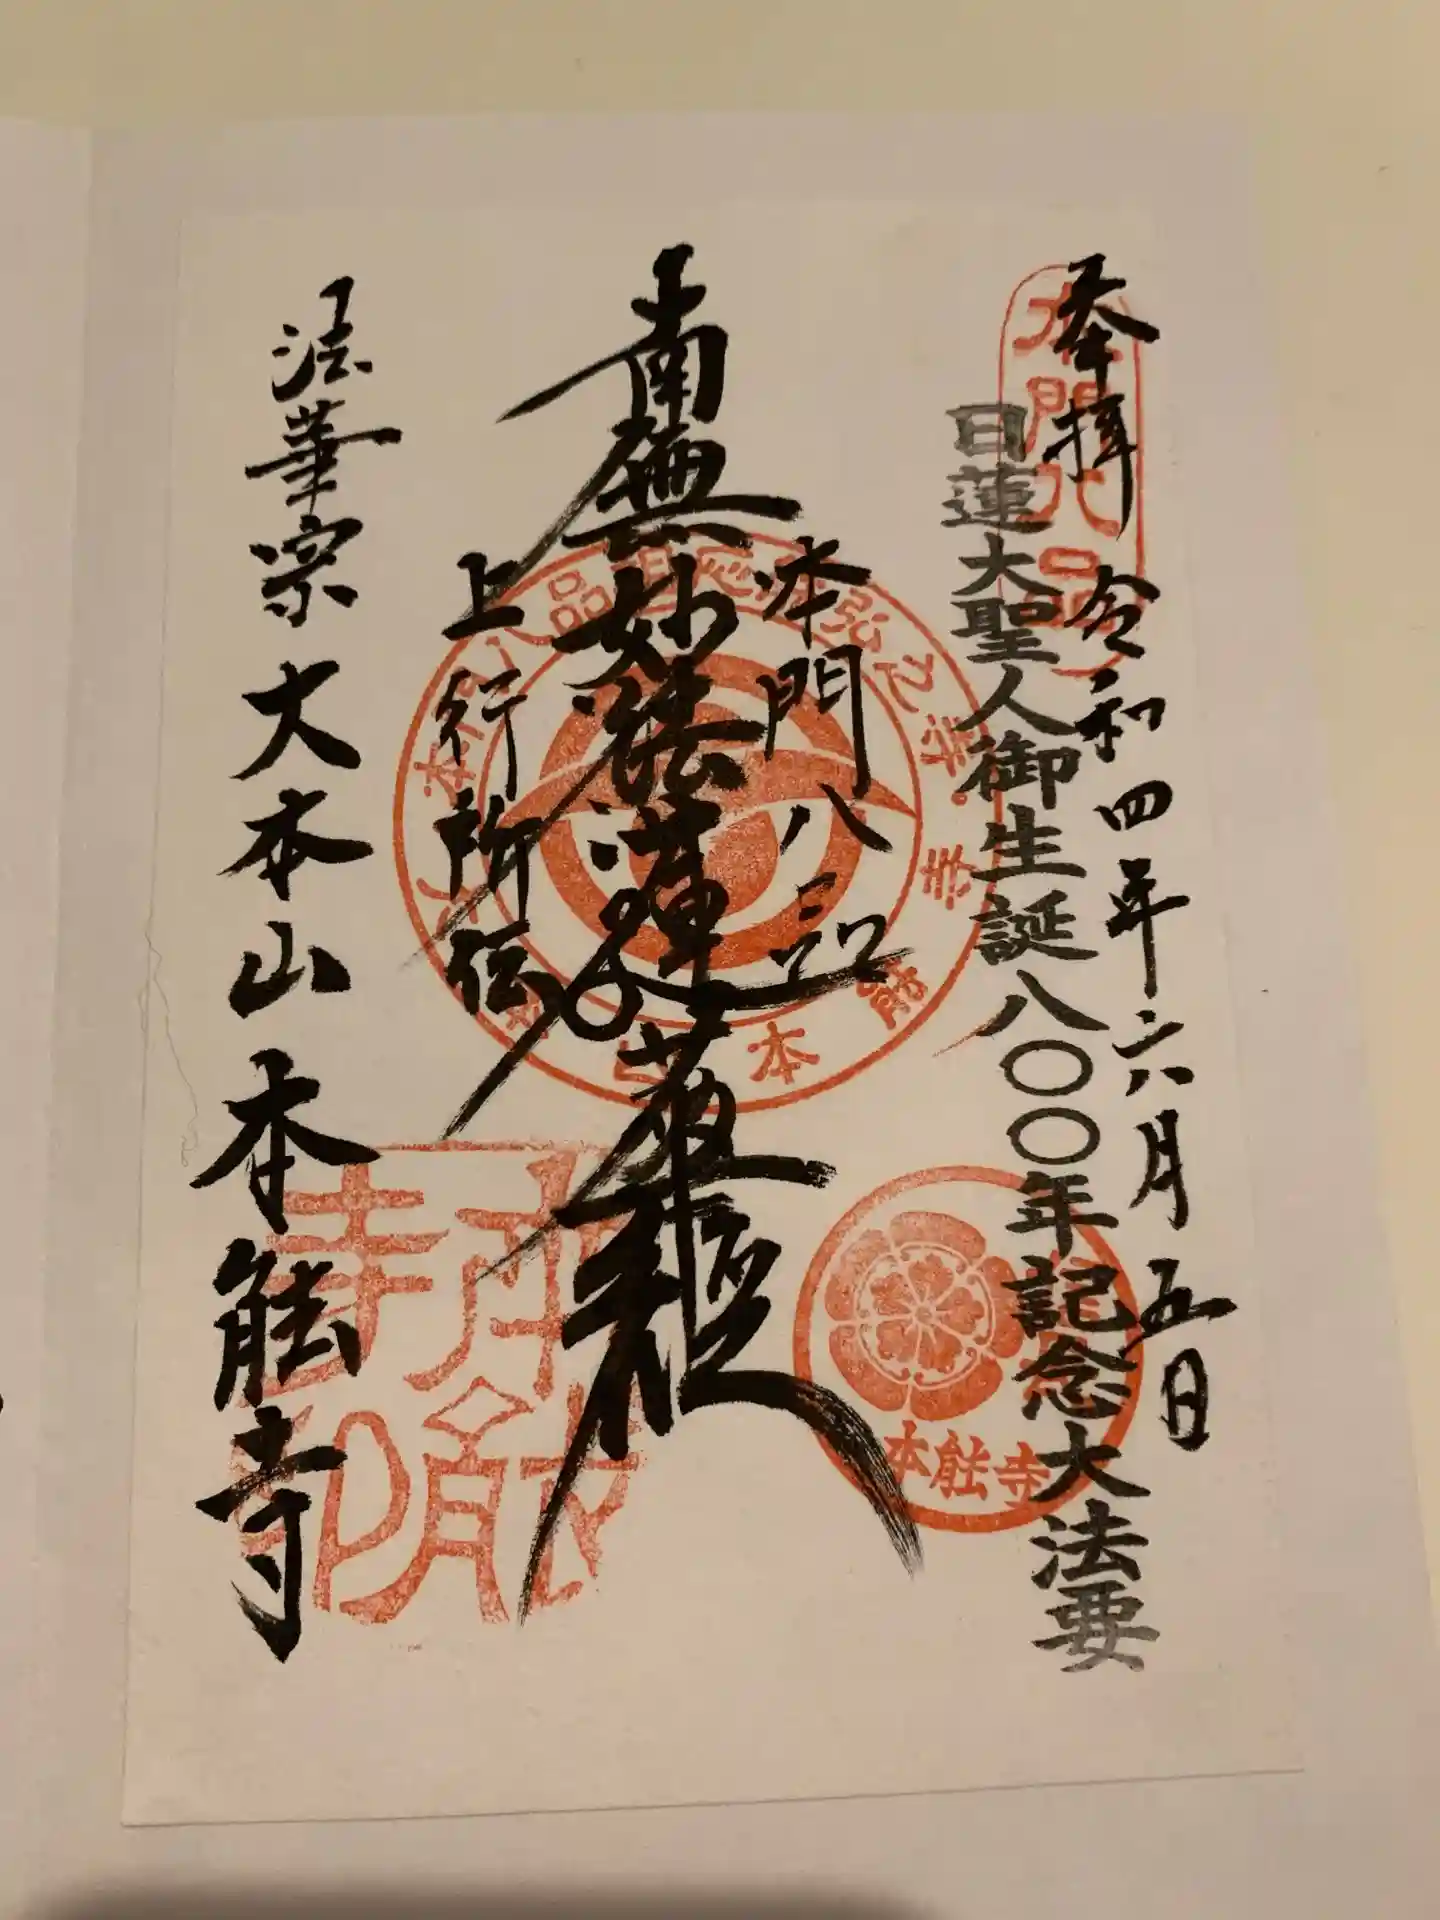 奉拝 令和四年六月五日
日蓮大聖人御生誕八〇〇年記念大法要
本門八品
本門八品
南無妙法蓮華経
上行所伝
法華宗 大本山 本能寺
本能寺
本能寺印